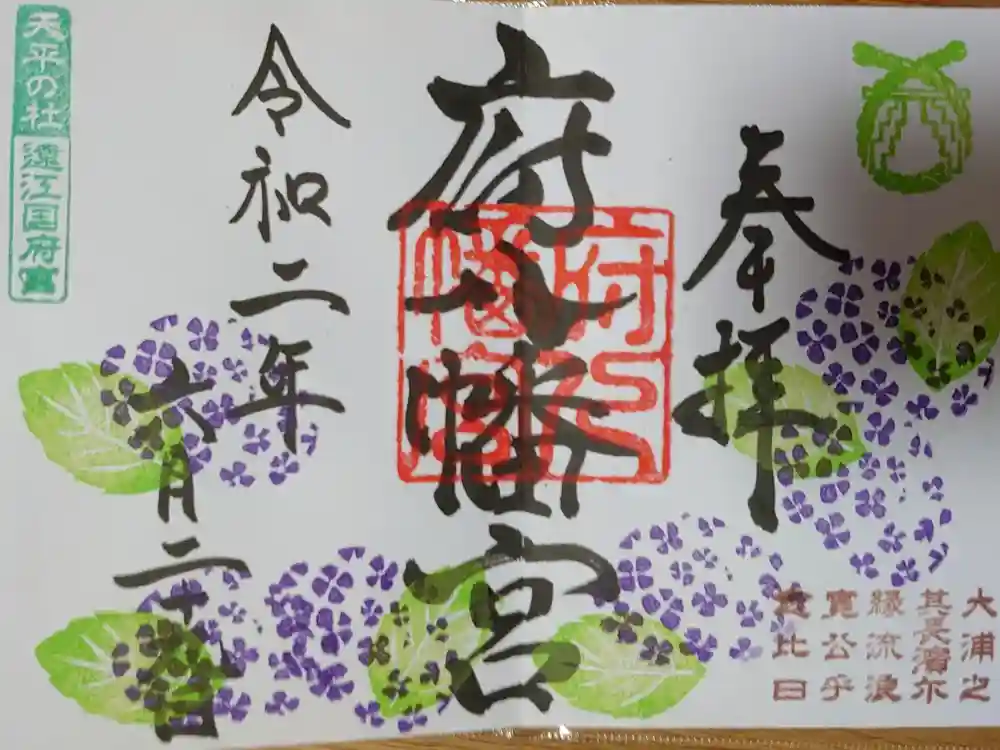 奉拝
府八幡宮
府八
幡宮
令和二年
六月二十
日
天平の社
遠江国府宮
大浦之
其長濱尓
縁流浪
寛公乎
比日